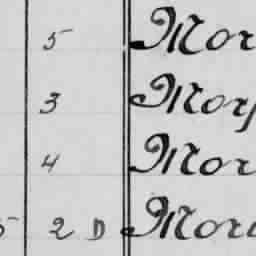 5 Mor
3 Mor
4 Mor
5 2 D Mor